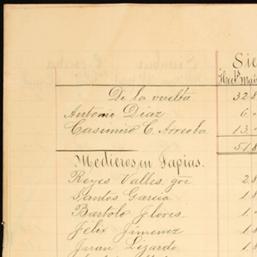 Sie
De la vuelta 32.8
Antonio Diaz 6.
Casimiro C. Arreola 13.
51.8
Medieros en Tapias.
Reyes Valles 2.8
Santos Garcia 1.
Bartolo Flores. 1.
Felix Jimenez 1.8
Juan Lizardo 1.8